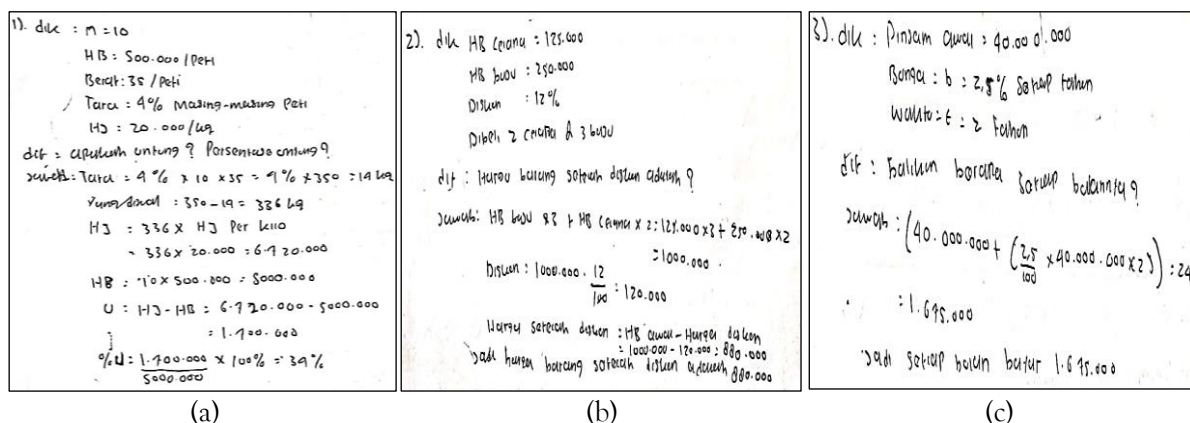 1). dik : n = 10
HB : 500.000 / Peti
Berat : 35 / Peti
Tara : 4% Masing-masing Peti
HJ : 20.000 / kg
dit = apakah untung ? Persentase untung ?
Jawab : Tara = 4% x 10 x 35 = 4% x 350 = 14 kg
350 - 14 = 336 kg
HJ = 336 x HJ Per kilo
= 336 x 20.000 = 6.720.000
HB = 10 x 500.000 = 5000.000
U = HJ - HB = 6.720.000 - 5000.000
= 1.700.000
%U = 1.700.000 / 5000.000 x 100% = 34%
(a)
2). dik HB celana = 125.000
HB baju = 250.000
Diskon : 12%
Dibeli 2 celana & 3 baju
dit : Harga barang setelah diskon adalah ?
Jawab : HB baju x 3 + HB celana x 2 = 125.000 x 3 + 250.000 x 2
= 1000.000
Diskon : 1000.000 . 12 / 100 = 120.000
Harga setelah diskon : HB awal - Harga diskon
= 1000.000 - 120.000 = 880.000
Jadi harga barang setelah diskon adalah 880.000
(b)
3). dik : Pinjam awal = 40.000.000
Bunga : b = 2,5% setiap tahun
Waktu = t = 2 tahun
dit : berapa setiap bulannya ?
Jawab : (40.000.000 + (2,5 / 100 x 40.000.000 x 2)) = 24
= 1.675.000
Jadi setiap bulan bayar 1.675.000
(c)